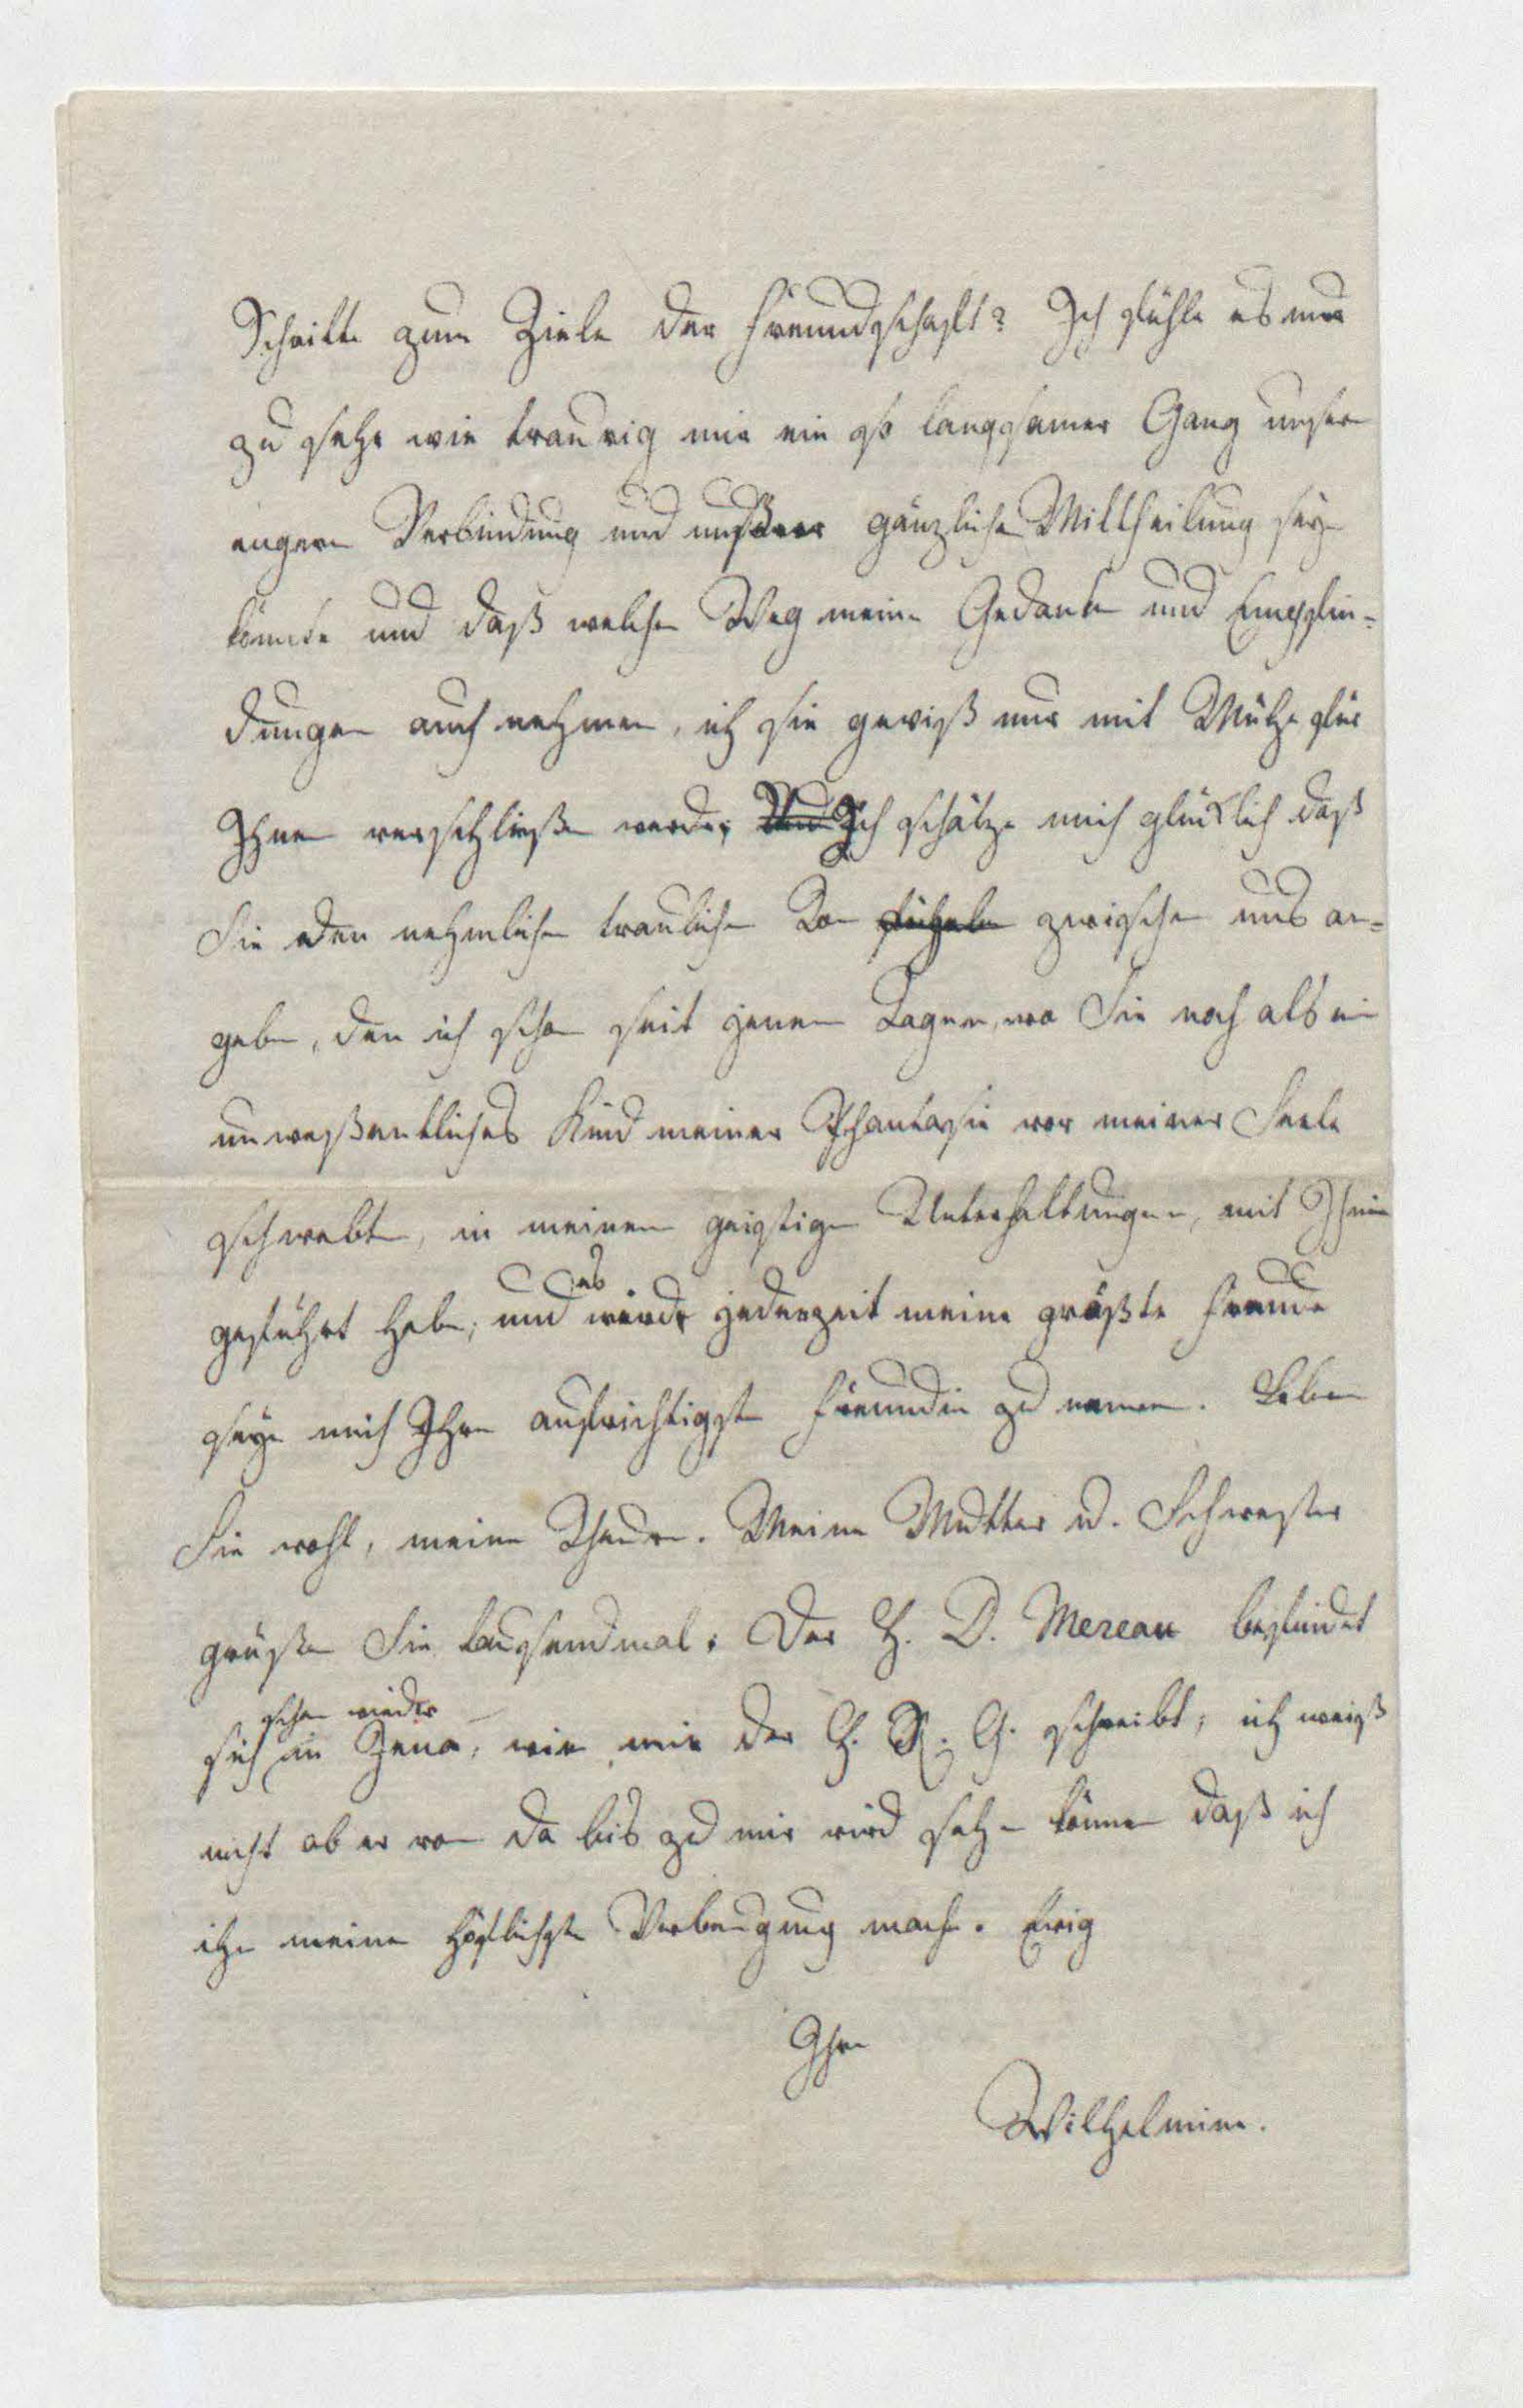 Schritte zum Ziele der Freundschaft? Ich fühle es nur
zu sehr wie traurig mir ein so langsamer Gang unsrer
engern Verbindung und unsrer gänzlichen Mittheilung seyn
könnte und daß welchen Weg meine Gedanken und Empfin-
dungen auch nehmen, ich sie gewiß nur mit Mühe für
Ihnen verschließen werde; Ich schätze mich glücklich daß
Sie den nehmlichen traulichen Ton zwischen uns an-
geben, den ich schon seit jenen Tagen, wo Sie noch als ein
unwesentliches Kind meiner Phantasie vor meiner Seele
schwebten, in meinen geistigen Unterhaltungen, mit Ihnen
geführt habe, und es wird jederzeit meine größte Freude
seyn mich Ihre aufrichtigste Freundin zu nennen. Leben
Sie wohl, meine Theure. Meine Mutter u. Schwester
grüßen Sie tausendmal. Der H. D. Mereau befindet
sich schon wieder in Jena, wie mir der H. R. G. schreibt; ich weiß
nicht ob er von da bis zu mir wird sehen können daß ich
ihm meine höflichste Verbeugung mache. Ewig
Ihre
Wilhelmine.